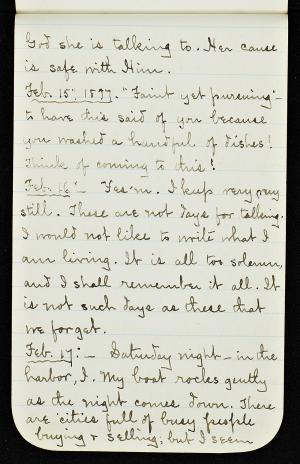 God she is talking to. Her cause
is safe with Him.
Feb. 15", 1897. "Faint yet pursuing"—
to have this said of you because
you washed a handful of dishes!
Think of coming to this!
Feb. 16":— Yes'm. I keep very very
still. These are not days for talking.
I would not like to write what I
am living. It is all too solemn,
and I shall remember it all. It
is not such days as these that
we forget.
Feb. 17:— Saturday night—in the
harbor, I. My boat rocks gently
as the night comes down. There
are cities full of busy people
buying & selling; but I seem